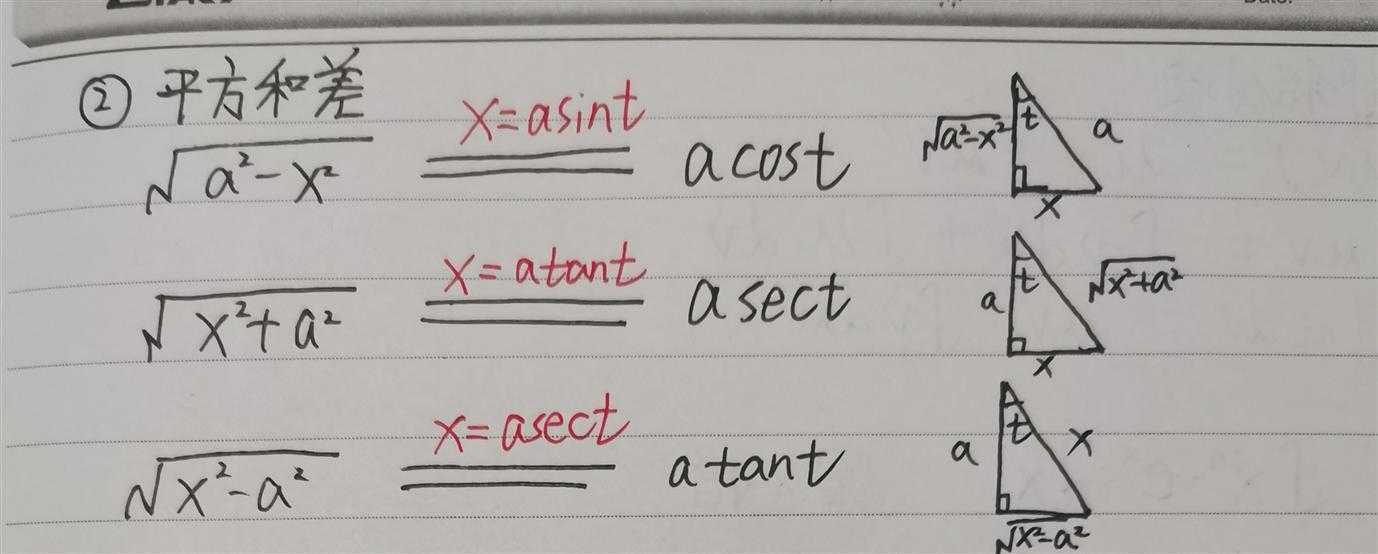 ② 平方和差
√(a²-x²) x=asint acost √(a²-x²) t a x
√(x²+a²) x=atant asect a t √(x²+a²) x
√(x²-a²) x=asect atant a t x √(x²-a²)